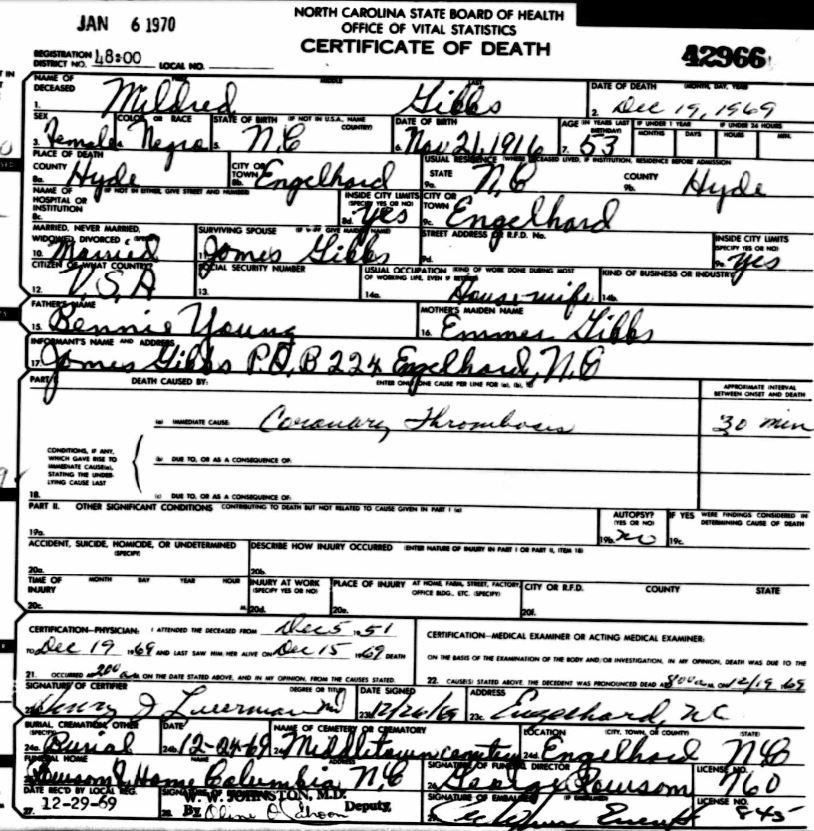 JAN 6 1970
NORTH CAROLINA STATE BOARD OF HEALTH
OFFICE OF VITAL STATISTICS
CERTIFICATE OF DEATH
REGISTRATION DISTRICT NO. 48-00 LOCAL NO. 42966
NAME OF DECEASED FIRST MIDDLE LAST DATE OF DEATH (MONTH, DAY, YEAR)
1. Mildred Gibbs 2. Dec 19, 1969
SEX COLOR OR RACE STATE OF BIRTH (IF NOT IN U.S.A., NAME COUNTRY) DATE OF BIRTH AGE (IN YEARS LAST BIRTHDAY) IF UNDER 1 YEAR MONTHS DAYS IF UNDER 24 HOURS HOURS MIN.
3. Female 4. Negro 5. N.C 6. Nov 21, 1916 7. 53
PLACE OF DEATH USUAL RESIDENCE (WHERE DECEASED LIVED, IF INSTITUTION, RESIDENCE BEFORE ADMISSION
COUNTY CITY OR TOWN STATE COUNTY
8a. Hyde 8b. Engelhard 9a. N.C 9b. Hyde
NAME OF HOSPITAL OR INSTITUTION (IF NOT IN EITHER, GIVE STREET AND NUMBER) INSIDE CITY LIMITS (SPECIFY YES OR NO) CITY OR TOWN
8c. 8d. yes 9c. Engelhard
MARRIED, NEVER MARRIED, WIDOWED, DIVORCED SURVIVING SPOUSE STREET ADDRESS or R.F.D. No. INSIDE CITY LIMITS (SPECIFY YES OR NO)
10. Married 11. James Gibbs 9d. 9e. yes
CITIZEN OF WHAT COUNTRY? SOCIAL SECURITY NUMBER USUAL OCCUPATION (KIND OF WORK DONE DURING MOST OF WORKING LIFE, EVEN IF RETIRED) KIND OF BUSINESS OR INDUSTRY
12. U.S.A 13. 14a. Housewife 14b.
FATHER'S NAME MOTHER'S MAIDEN NAME
15. Bennie Young 16. Emmer Gibbs
INFORMANT'S NAME AND ADDRESS
17. James Gibbs P.O,B 224 Engelhard, N.C
PART I DEATH CAUSED BY: ENTER ONLY ONE CAUSE PER LINE FOR (a), (b), (c) APPROXIMATE INTERVAL BETWEEN ONSET AND DEATH
(a) IMMEDIATE CAUSE: Coronary Thrombosis 30 min
CONDITIONS, IF ANY, WHICH GAVE RISE TO IMMEDIATE CAUSE(a), STATING THE UNDERLYING CAUSE LAST
(b) DUE TO, OR AS A CONSEQUENCE OF:
18. (c) DUE TO, OR AS A CONSEQUENCE OF:
PART II. OTHER SIGNIFICANT CONDITIONS CONTRIBUTING TO DEATH BUT NOT RELATED TO CAUSE GIVEN IN PART I (a) AUTOPSY? (YES OR NO) IF YES WERE FINDINGS CONSIDERED IN DETERMINING CAUSE OF DEATH
19a. 19b. no 19c.
ACCIDENT, SUICIDE, HOMICIDE, OR UNDETERMINED (SPECIFY) DESCRIBE HOW INJURY OCCURRED (ENTER NATURE OF INJURY IN PART I OR PART II, ITEM 18)
20a. 20b.
TIME OF INJURY MONTH DAY YEAR HOUR INJURY AT WORK (SPECIFY YES OR NO) PLACE OF INJURY AT HOME FARM, STREET, FACTORY, OFFICE BLDG., ETC. (SPECIFY) CITY OR R.F.D. COUNTY STATE
20c. M. 20d. 20e. 20f.
CERTIFICATION—PHYSICIAN: I ATTENDED THE DECEASED FROM Dec 5 1951 CERTIFICATION—MEDICAL EXAMINER OR ACTING MEDICAL EXAMINER:
TO Dec 19 1969 AND LAST SAW HIM/HER ALIVE ON Dec 15 1969 DEATH ON THE BASIS OF THE EXAMINATION OF THE BODY AND/OR INVESTIGATION, IN MY OPINION, DEATH WAS DUE TO THE
21. OCCURRED AT 200 a M. ON THE DATE STATED ABOVE, AND IN MY OPINION, FROM THE CAUSES STATED. 22. CAUSE(S) STATED ABOVE. THE DECEDENT WAS PRONOUNCED DEAD AT 800 a M. ON 12/19 1969
SIGNATURE OF CERTIFIER DEGREE OR TITLE DATE SIGNED ADDRESS
Henry MD 23b. 12/26/69 23c. Engelhard, NC
BURIAL, CREMATION, OTHER (SPECIFY) DATE NAME OF CEMETERY OR CREMATORY LOCATION (CITY, TOWN, OR COUNTY) (STATE)
24a. Burial 24b. 12-24-69 24c. Middletown 24d. Engelhard N.C
FUNERAL HOME NAME ADDRESS SIGNATURE OF FUNERAL DIRECTOR LICENSE NO.
Home Columbia N.C George Rowsom 760
DATE REC'D BY LOCAL REG. SIGNATURE OF SIGNATURE OF EMBALMER (IF EMBALMED) LICENSE NO.
27. 12-29-69 28. W. W. JOHNSTON, M.D. By Deputy. 845